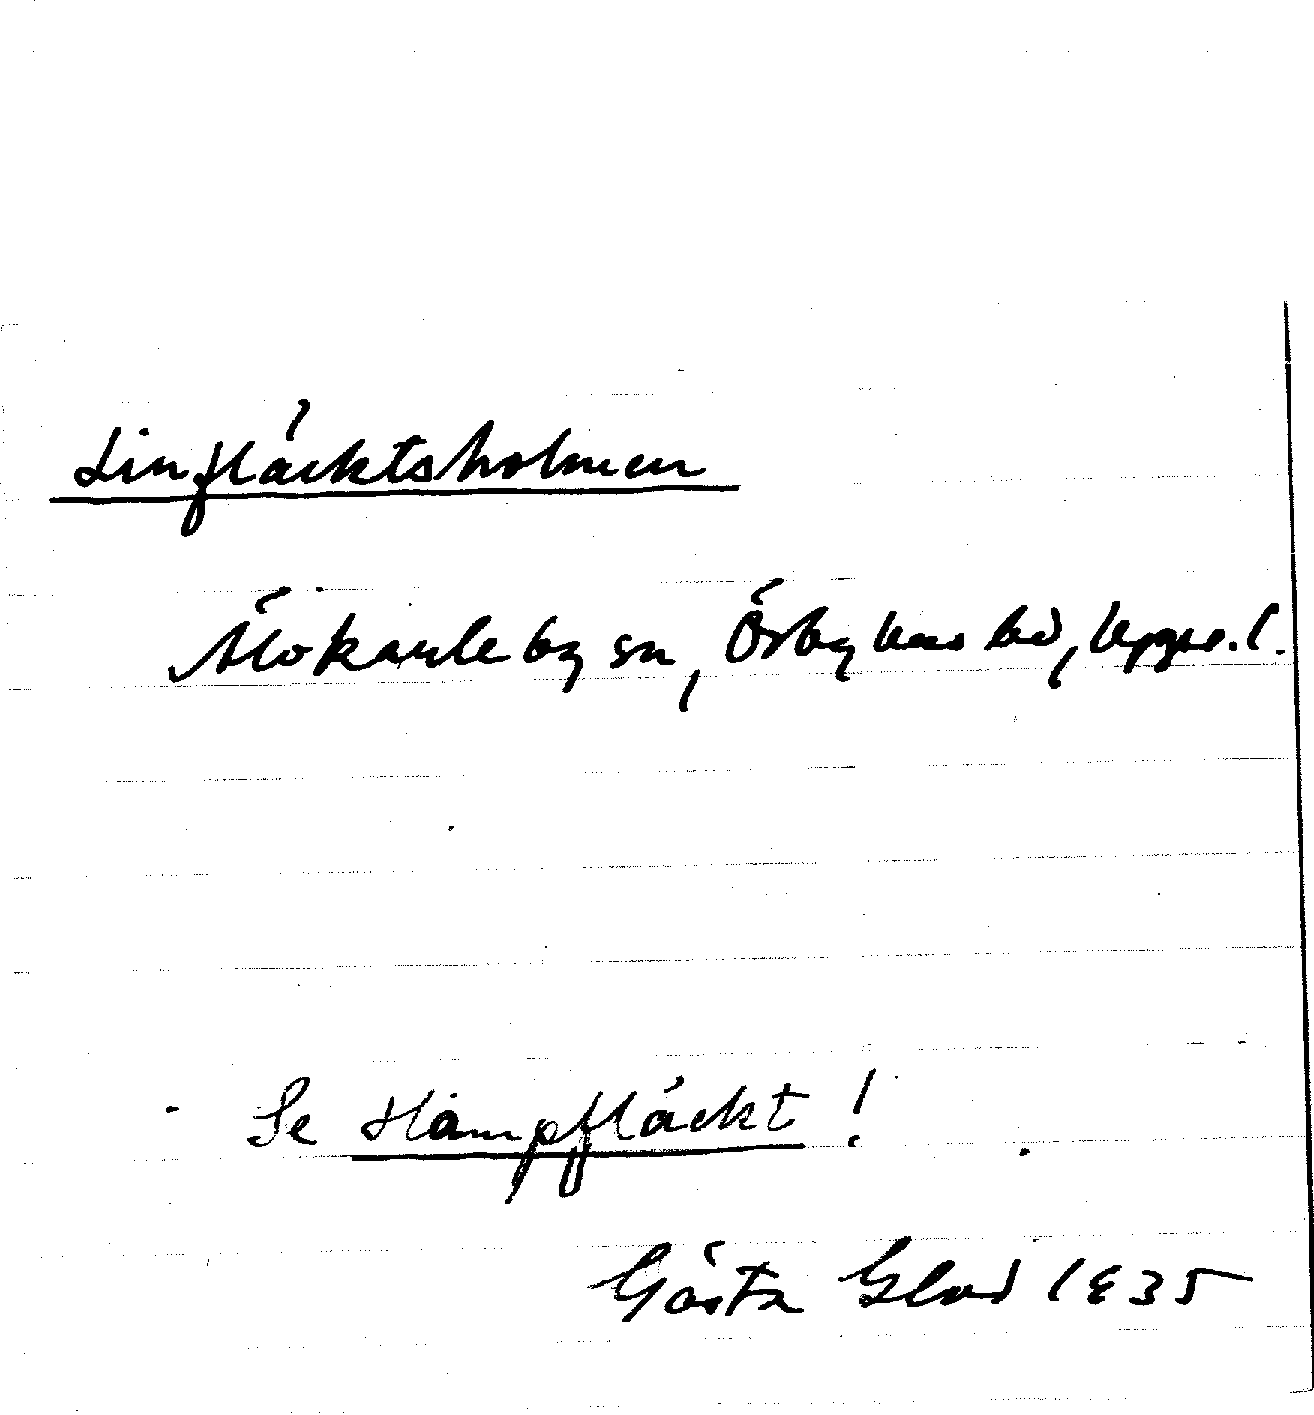 Linfläcktsholmen
Älvkarleby sn, Örbyhus hd, Upps. l.
Se Hampfläckt!
Gösta Glad 1935